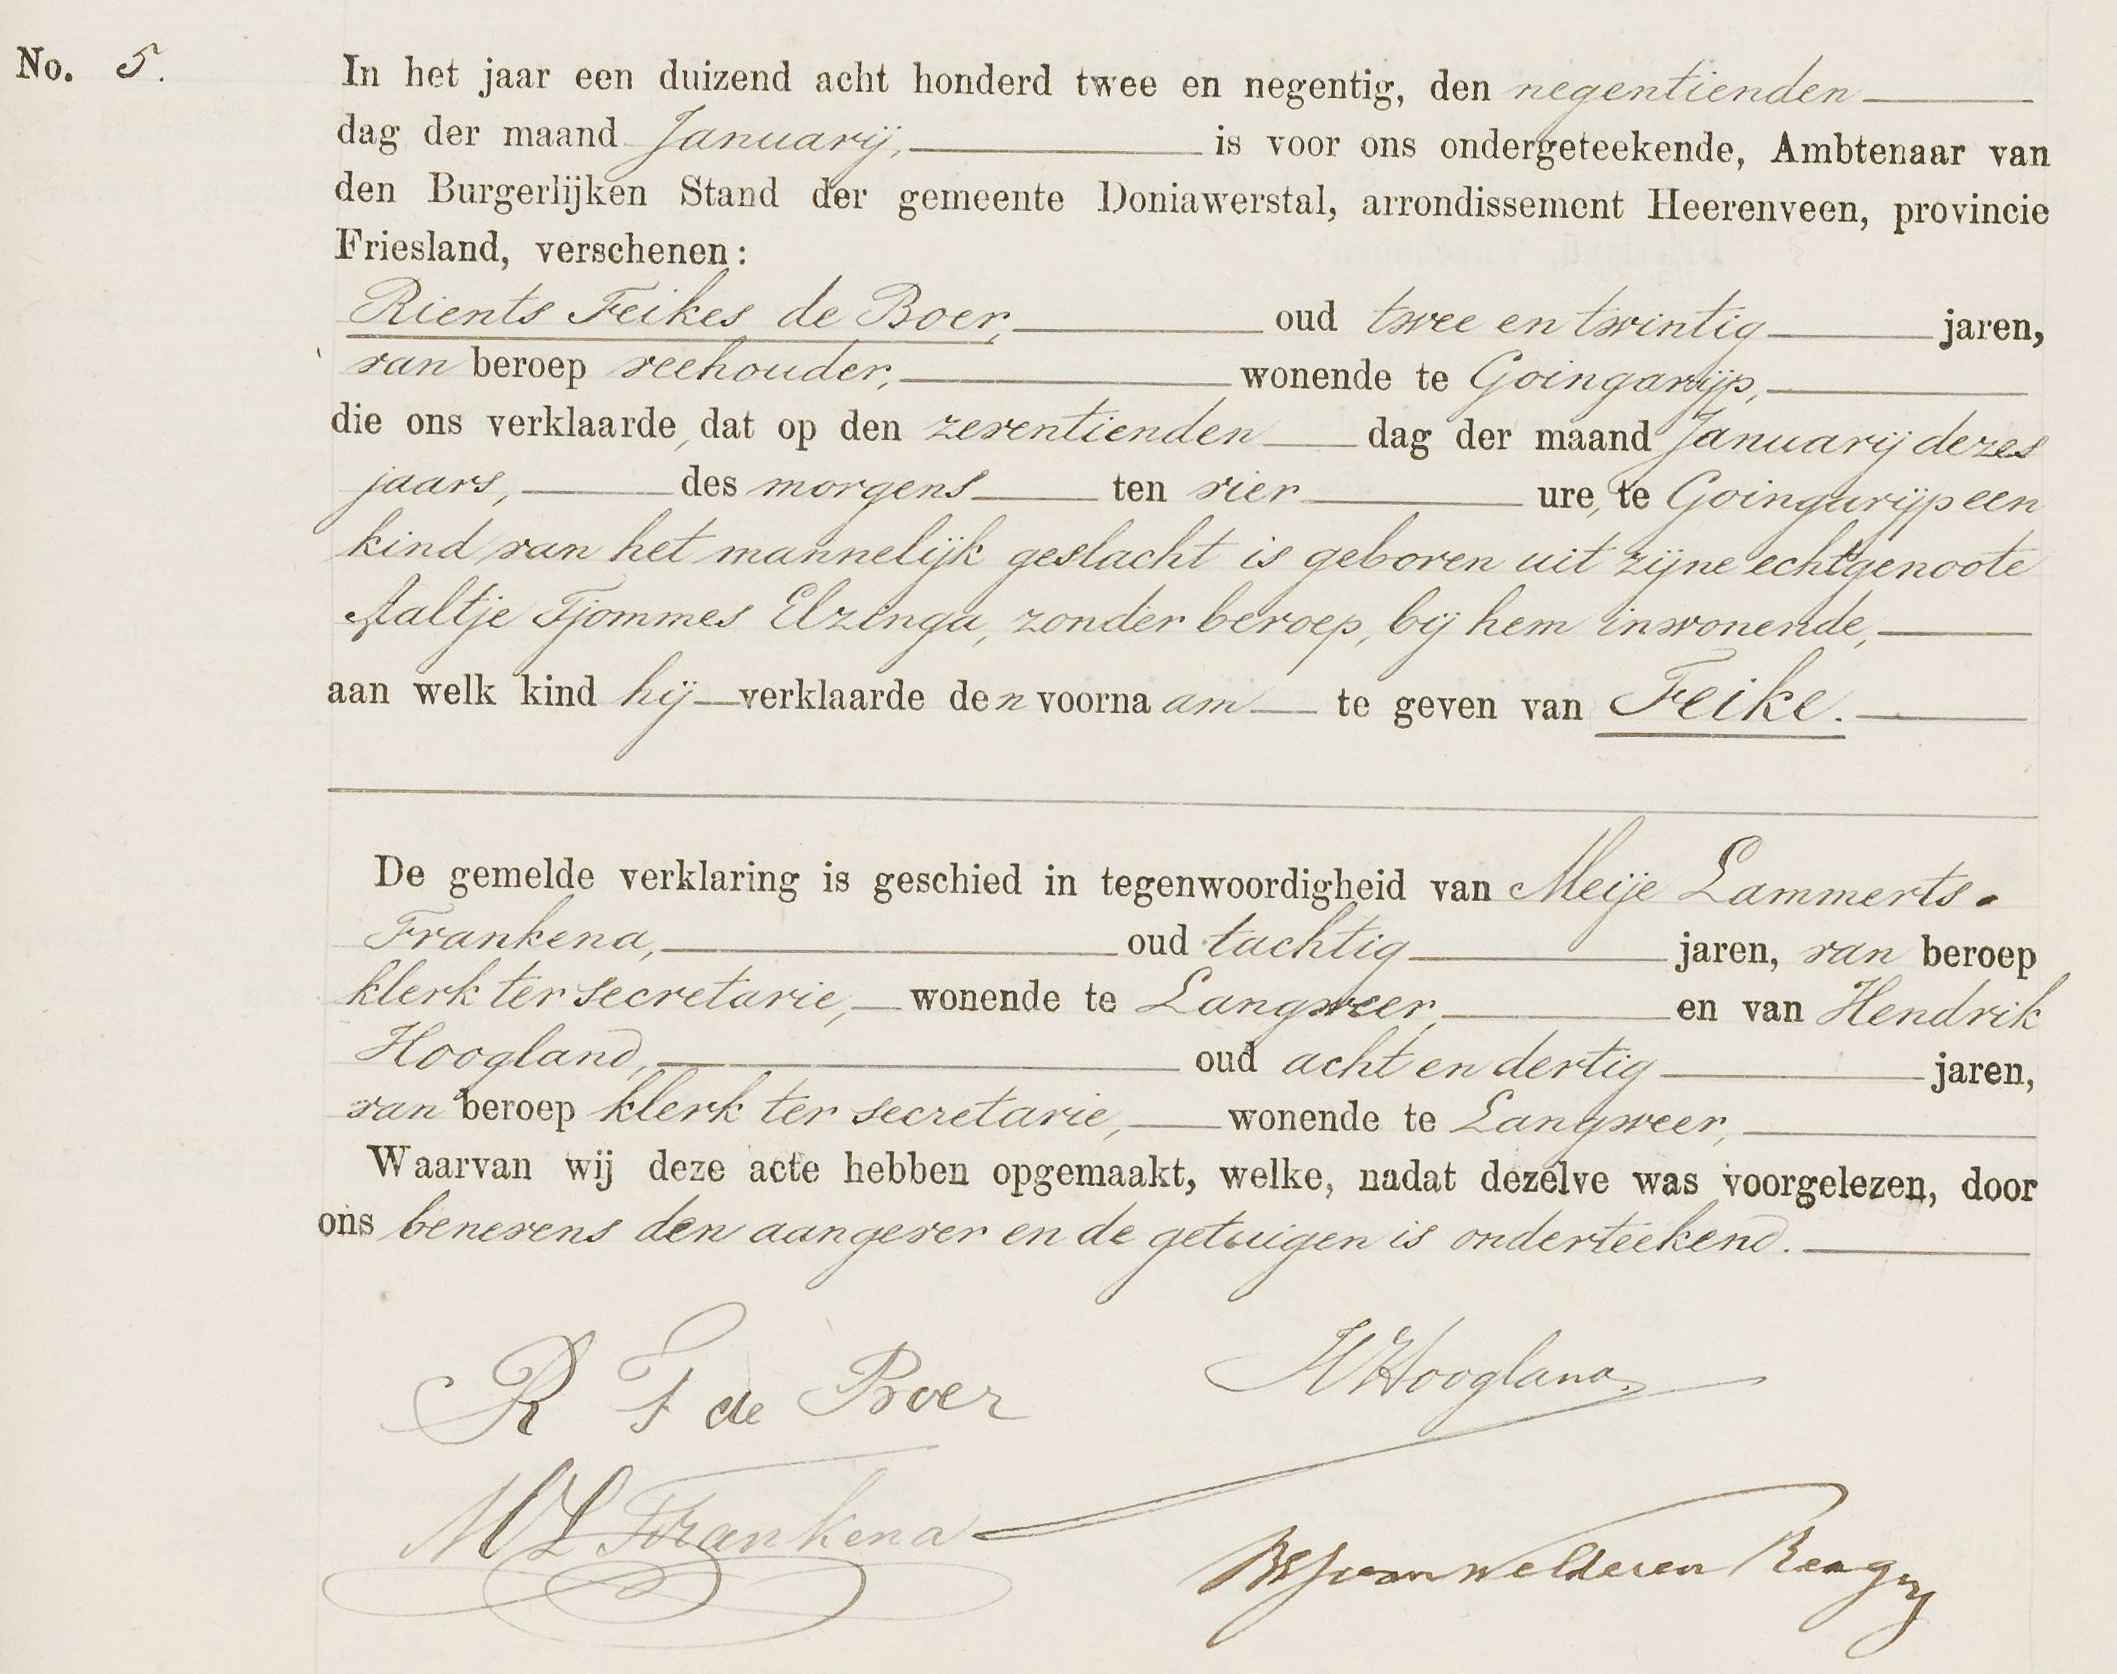 No. 5.
In het jaar een duizend acht honderd twee en negentig, den negentienden
dag der maand Januarij, is voor ons ondergeteekende, Ambtenaar van
den Burgerlijken Stand der gemeente Doniawerstal, arrondissement Heerenveen, provincie
Friesland, verschenen:
Rients Feikes de Boer, oud twee en twintig jaren,
van beroep veehouder, wonende te Goingarijp,
die ons verklaarde, dat op den zeventienden dag der maand Januarij dezes
jaars, des morgens ten vier ure, te Goingarijp een
kind van het mannelijk geslacht is geboren uit zijne echtgenoote
Aaltje Tjommes Elzinga, zonder beroep, bij hem inwonende,
aan welk kind hij verklaarde den voornaam te geven van Feike.
De gemelde verklaring is geschied in tegenwoordigheid van Meije Lammerts
Frankena, oud tachtig jaren, van beroep
klerk ter secretarie, wonende te Langweer, en van Hendrik
Hoogland, oud acht en dertig jaren,
van beroep klerk ter secretarie, wonende te Langweer,
Waarvan wij deze acte hebben opgemaakt, welke, nadat dezelve was voorgelezen, door
ons benevens den aangever en de getuigen is onderteekend.
R F de Boer
H Hoogland
M L Frankena
van Welderen Rengers